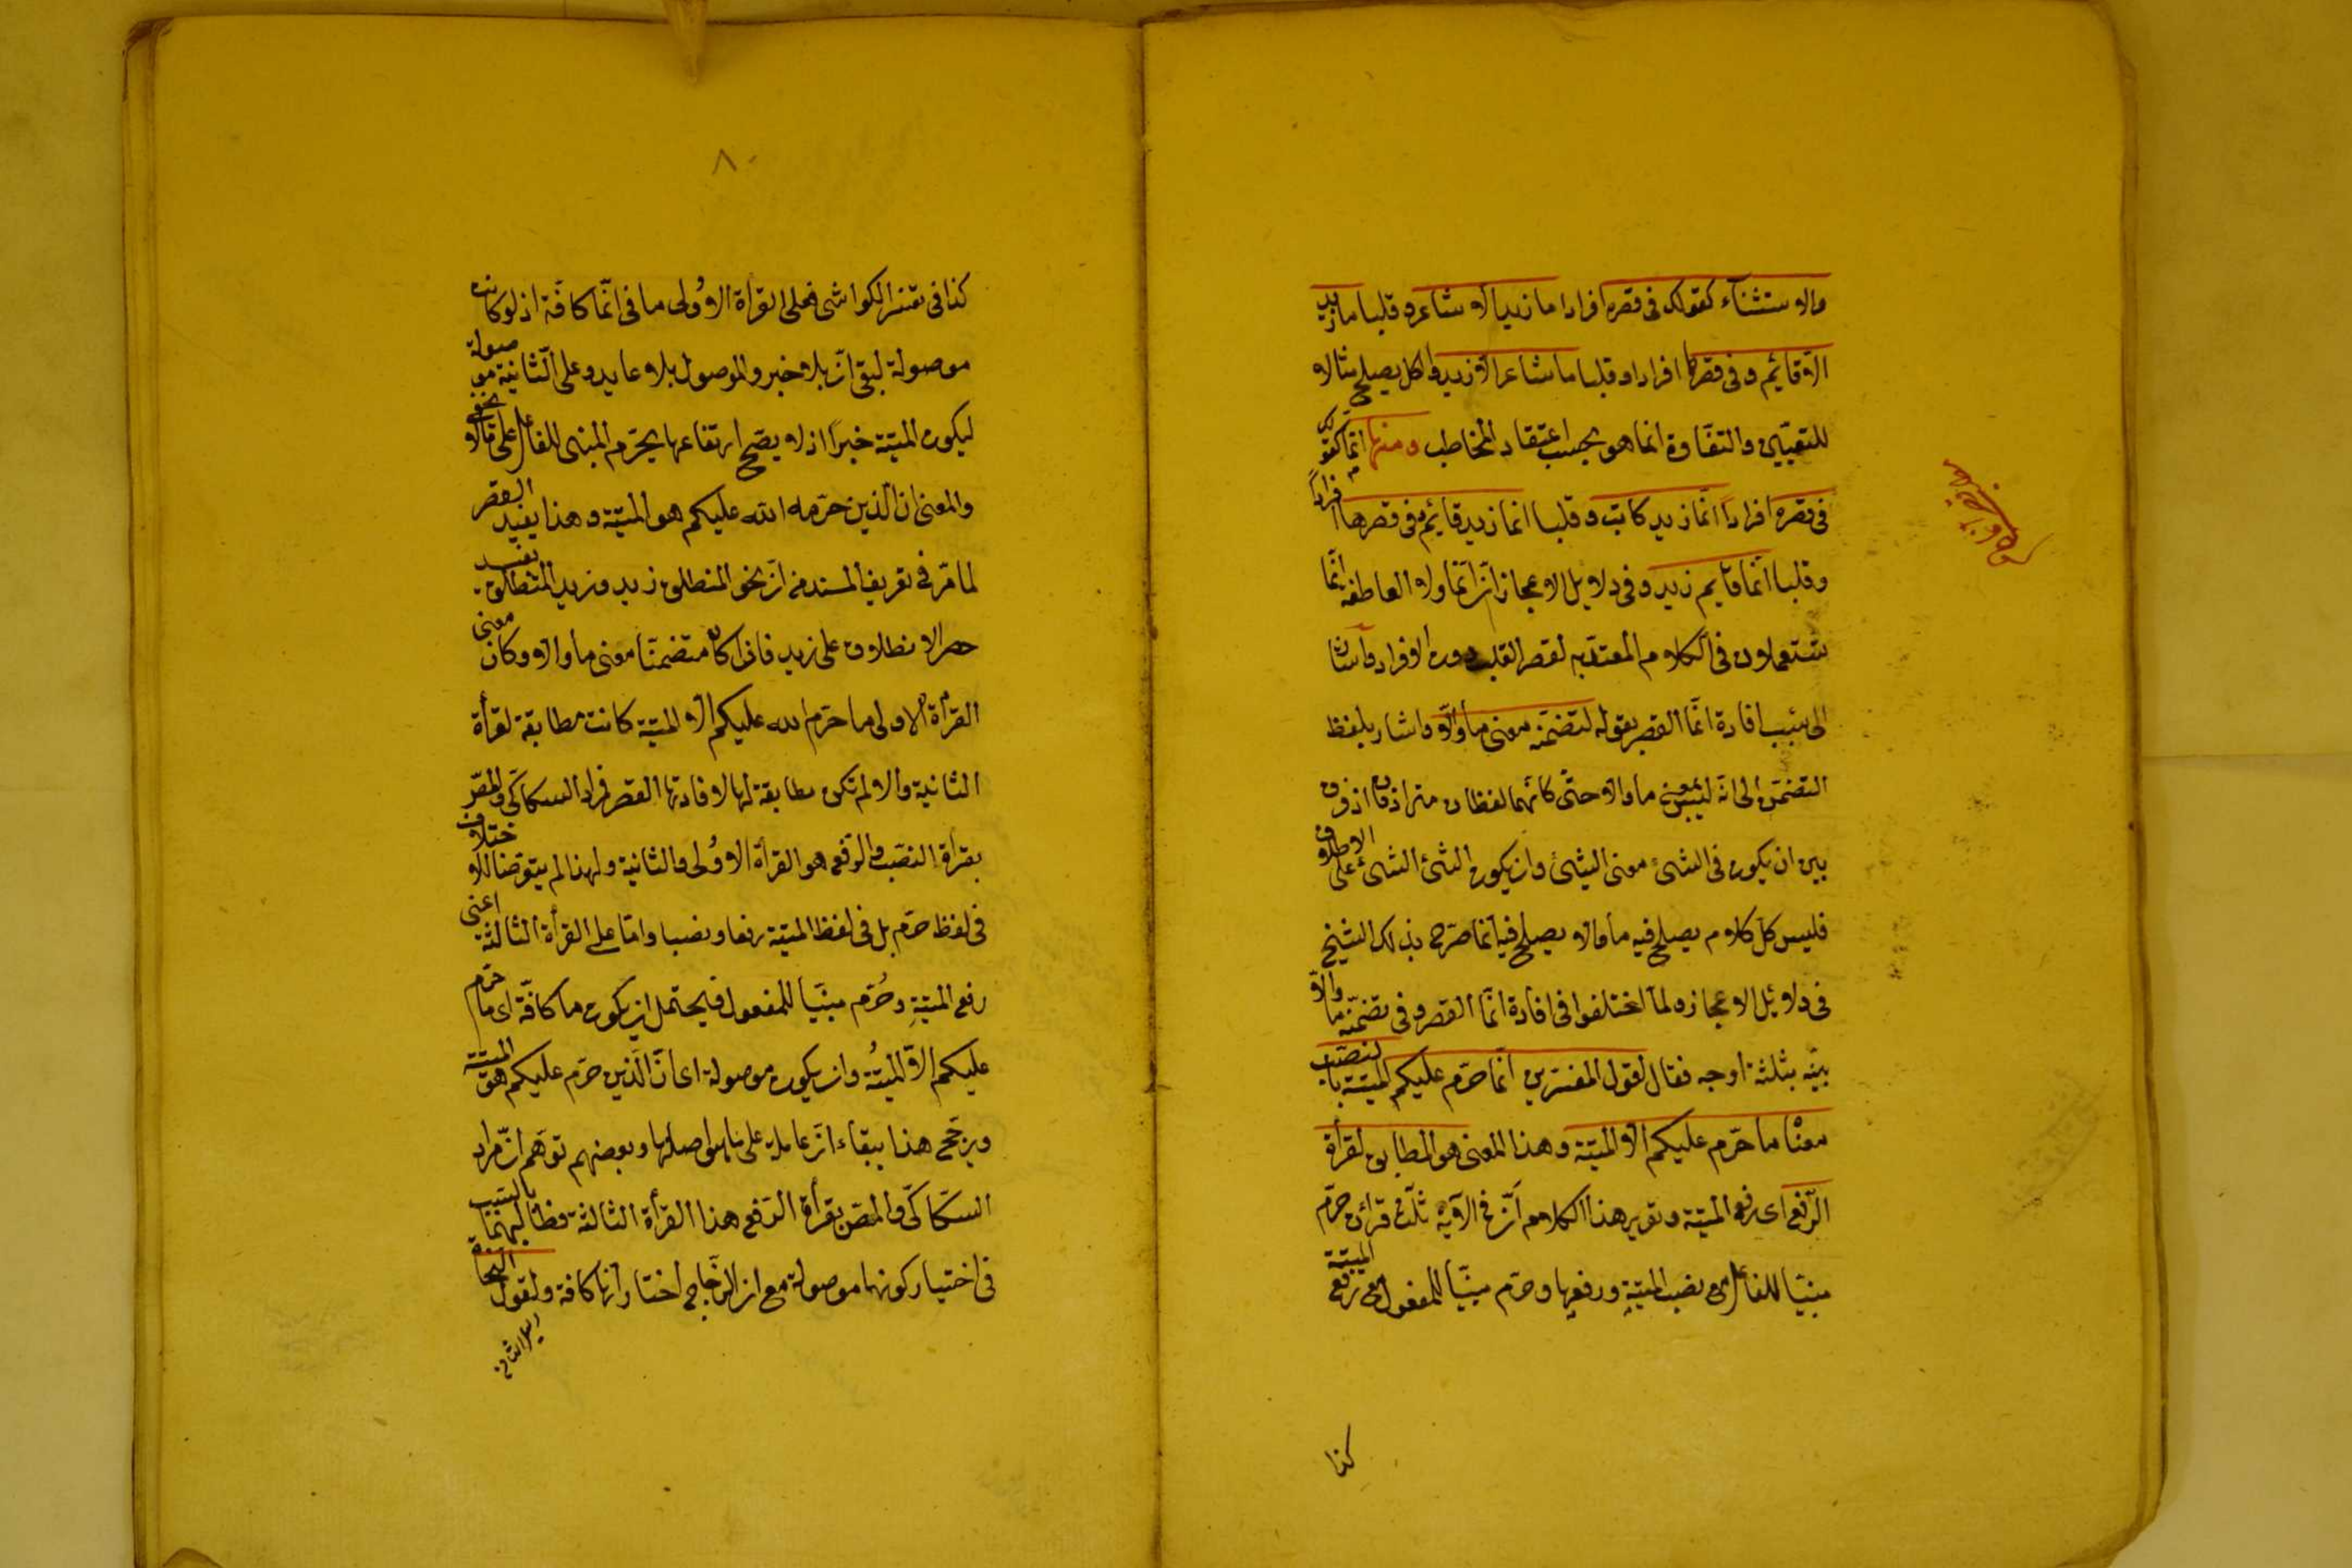 والاستثناء كقولك فى قصره افرادا ما زيد الا شاعر و قلبا ما زيد
الا قائم و فى قصرها افرادا و قلبا ما شاعر الا زيد والكل يصلح مثالا
للتعيين والتفاوة انما هو بحسب اعتقاد المخاطب ومنها انما كقولك
فى قصره افرادًا انما زيد كاتب و قلبا انما زيد قائم و فى قصرها افرادًا
وقلبا انما قايم زيد و فى دلايل الاعجاز انّ انما ولا العاطفة انّما
يستعملان فى الكلام المعتد به لقصر القلب دون الافراد وأشار
الى سبب افادة انما القصر بقوله لتضمنه معنى ما والّا واشار بلفظ
التضمن الى انه ليس بمعنى ما والا حتى كأنهما لفظان مترادفان اذ فرق
بين ان يكون فى الشئ معنى الشئ وان يكون الشئ الشئ على الاطلاق
فليس كل كلام يصلح فيه ما والا يصلح فيه انما صرح بذلك الشيخ
فى دلائل الاعجاز ولما اختلفوا فى افادة انّما القصر و فى تضمنه ما والّا
بينه بثلثة اوجه فقال لقول المفسرين انّما حرّم عليكم الميتة بالنصب
معناه ما حرّم عليكم الا الميتة وهذا المعنى هو المطابق لقراة
الرّفع اى رفع الميتة وتقرير هذا الكلام انّ فى الآية ثلث قرائن حرّم
مبنيّا للفاعل مع نصب الميتة ورفعها وحرّم مبنيّا للمفعول مع رفع الميتة
كذا
٨٠
كذا فى تفسير الكواشى فعلى القراة الاولى ما فى انّما كافّة اذ لو كانت
موصولة لبقى انّ بلا خبر والموصول بلا عايد وعلى الثانية موصولة
ليكون الميتة خبرًا اذ لا يصح ارتفاعها بحرّم المبنى للفاعل على ما لا يخفى
والمعنى ان الذين حرّمه الله عليكم هو الميتة وهذا يفيد القصر
لما مرّ فى تعريف المسند من انّ نحو المنطلق زيد وزيد المنطلق يفيد
حصر الانطلاق على زيد فاذا كان متضمنّا معنى ما والا وكان معنى
القرأة الاولى ما حرّم الله عليكم الا الميتة كانت مطابقة لقرأة
الثانية والا لم تكن مطابقة لها لافادتها القصر فمراد السكاكى والمص
بقراة النصب والرفع هو القرأة الاولى والثانية ولهذا لم يتعرضا للاختلاف
فى لفظ حرّم بل فى لفظ الميتة رفعا ونصبا وامّا على القرأة الثالثة اعنى
رفع الميتة وحُرّم مبنيّا للمفعول فيحتمل ان يكون ما كافّة اى ما حرّم
عليكم الا الميتة وان يكون موصولة اى انّ الذين حرّم عليكم هو الميتة
ويرجح هذا ببقاء انّ عاملة على ما هو اصلها وبعضهم توهم انّ مراد
السكاكى والمص بقرأة الرفع هذا القرأة الثالثة فطالبهما بالسبب
فى اختيار كونها موصولة مع ان الزجاج اختار انها كافة ولقول النحاة